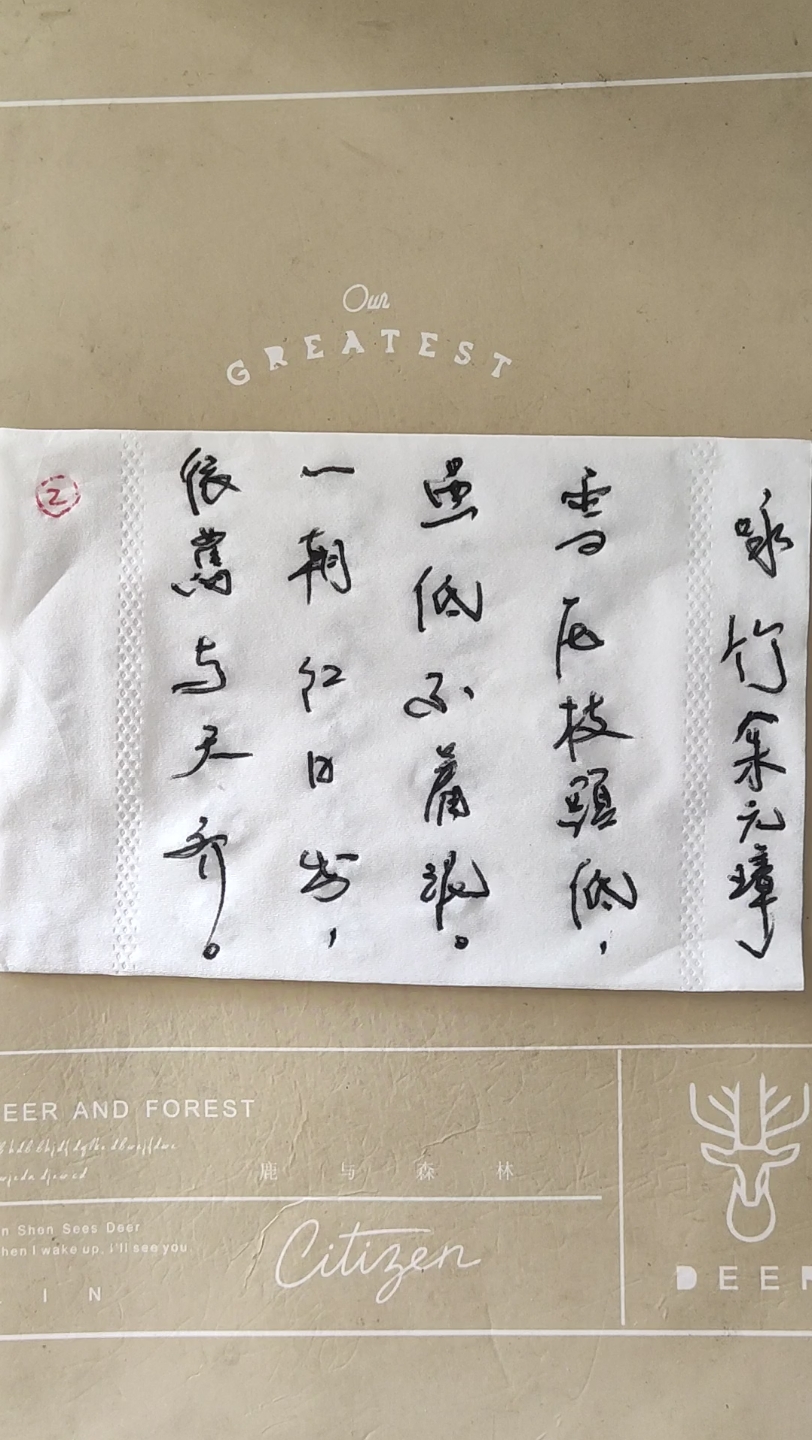 Our
GREATEST
咏竹朱元璋
雪压枝頭低，
虽低不着泥。
一朝红日出，
依舊与天齐。
2
EER AND FOREST
鹿与森林
n Shen Sees Deer
hen I wake up, I'll see you
I N
Citizen
DEER